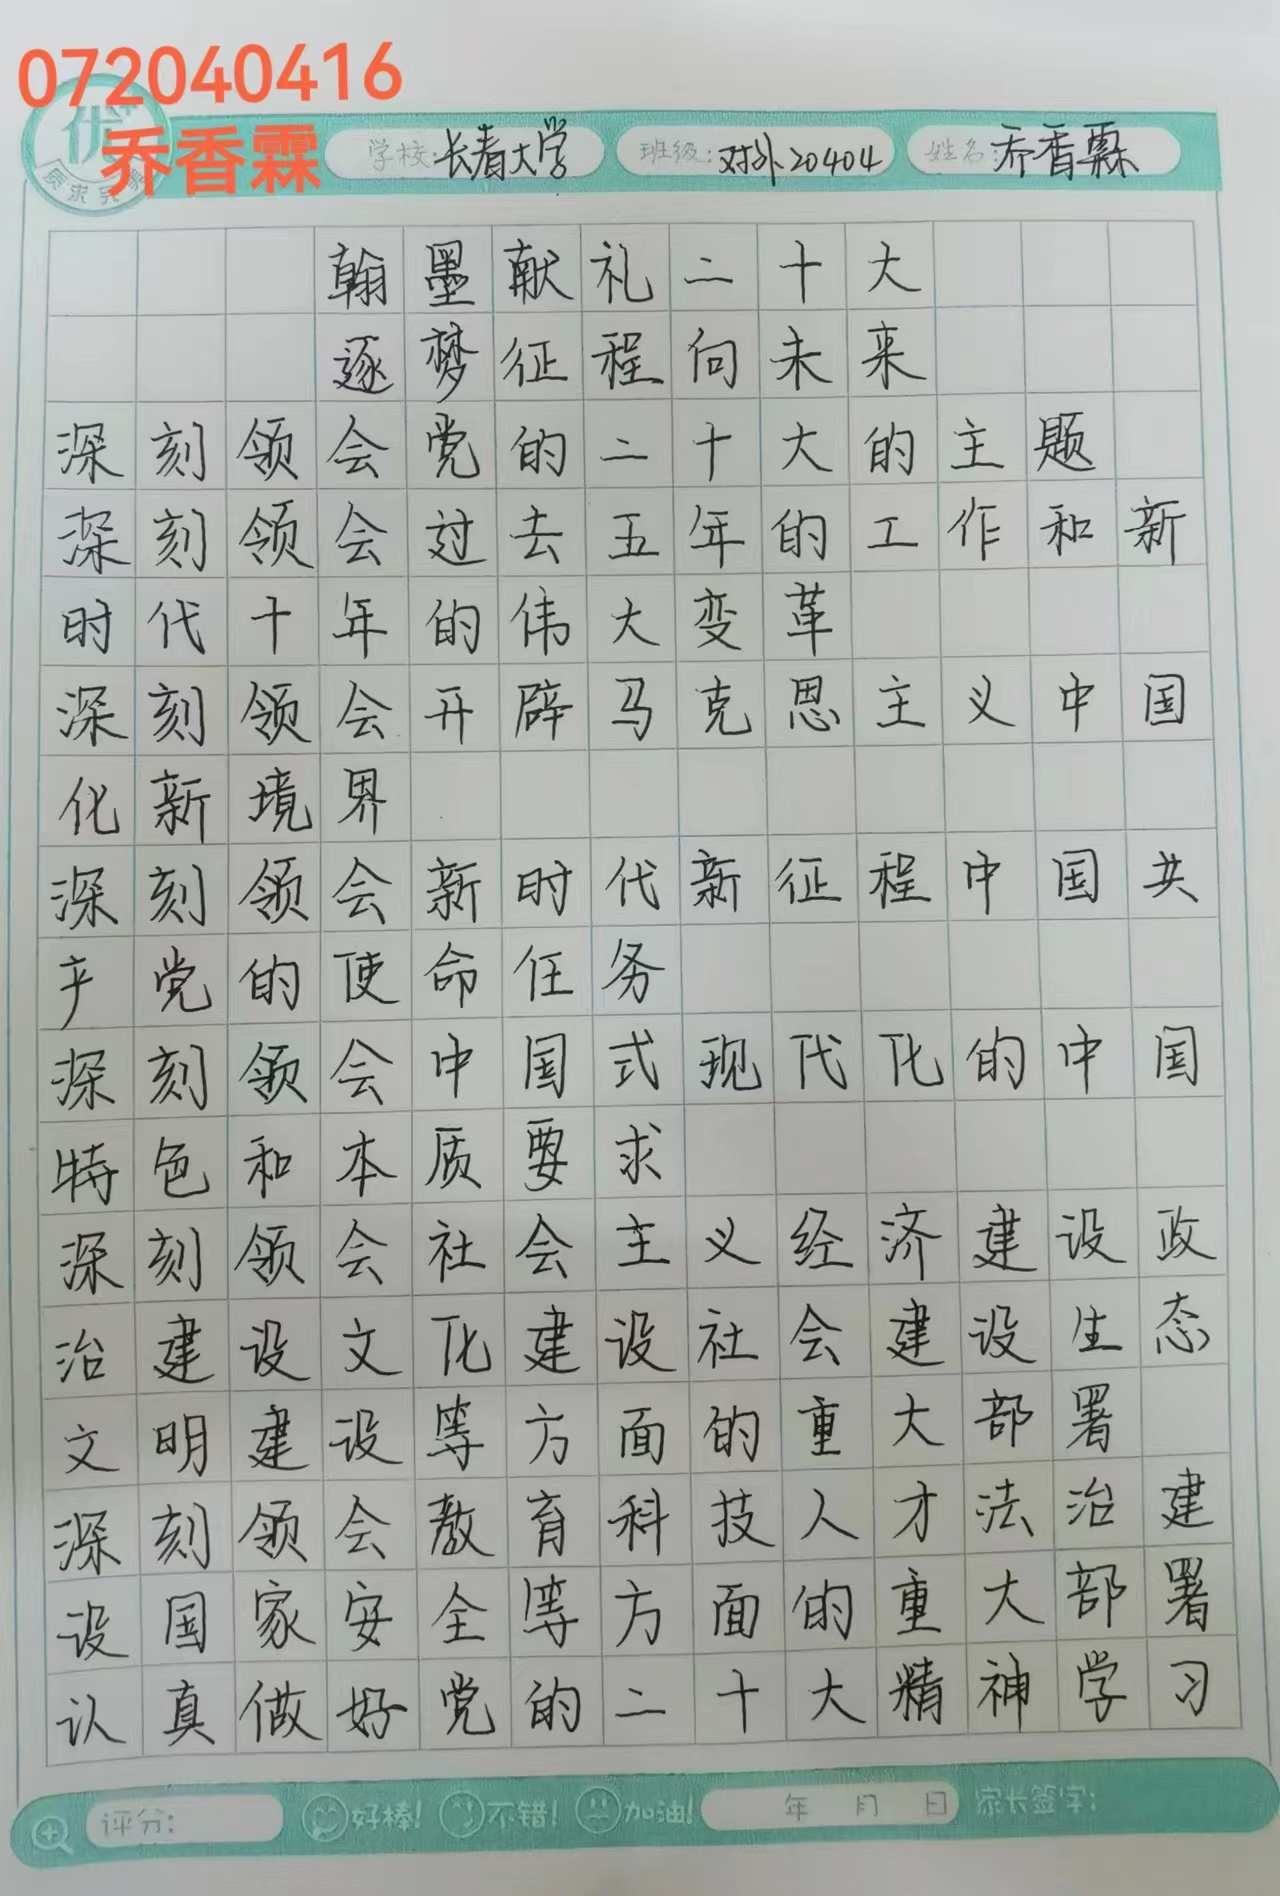 072040416
乔香霖
优+
质求完
学校:长春大学 班级:对外20404 姓名:乔香霖
翰墨献礼二十大
逐梦征程向未来
深刻领会党的二十大的主题
深刻领会过去五年的工作和新
时代十年的伟大变革
深刻领会开辟马克思主义中国
化新境界
深刻领会新时代新征程中国共
产党的使命任务
深刻领会中国式现代化的中国
特色和本质要求
深刻领会社会主义经济建设政
治建设文化建设社会建设生态
文明建设等方面的重大部署
深刻领会教育科技人才法治建
设国家安全等方面的重大部署
认真做好党的二十大精神学习
评分: 好棒! 不错! 加油! 年 月 日 家长签字: